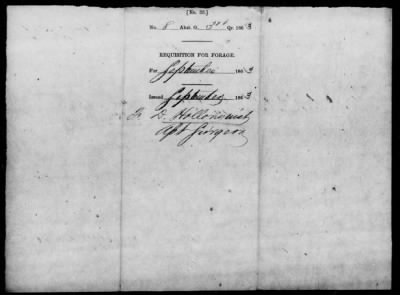 [No. 33.]
No. 8 Abst. G. 3rd Qr. 1863
REQUISITION FOR FORAGE.
For September 1863
Issued September 1863
D. Hollonquist
Ast Surgeon